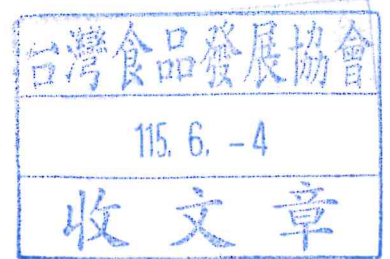 台灣食品發展協會
115. 6. -4
收文章